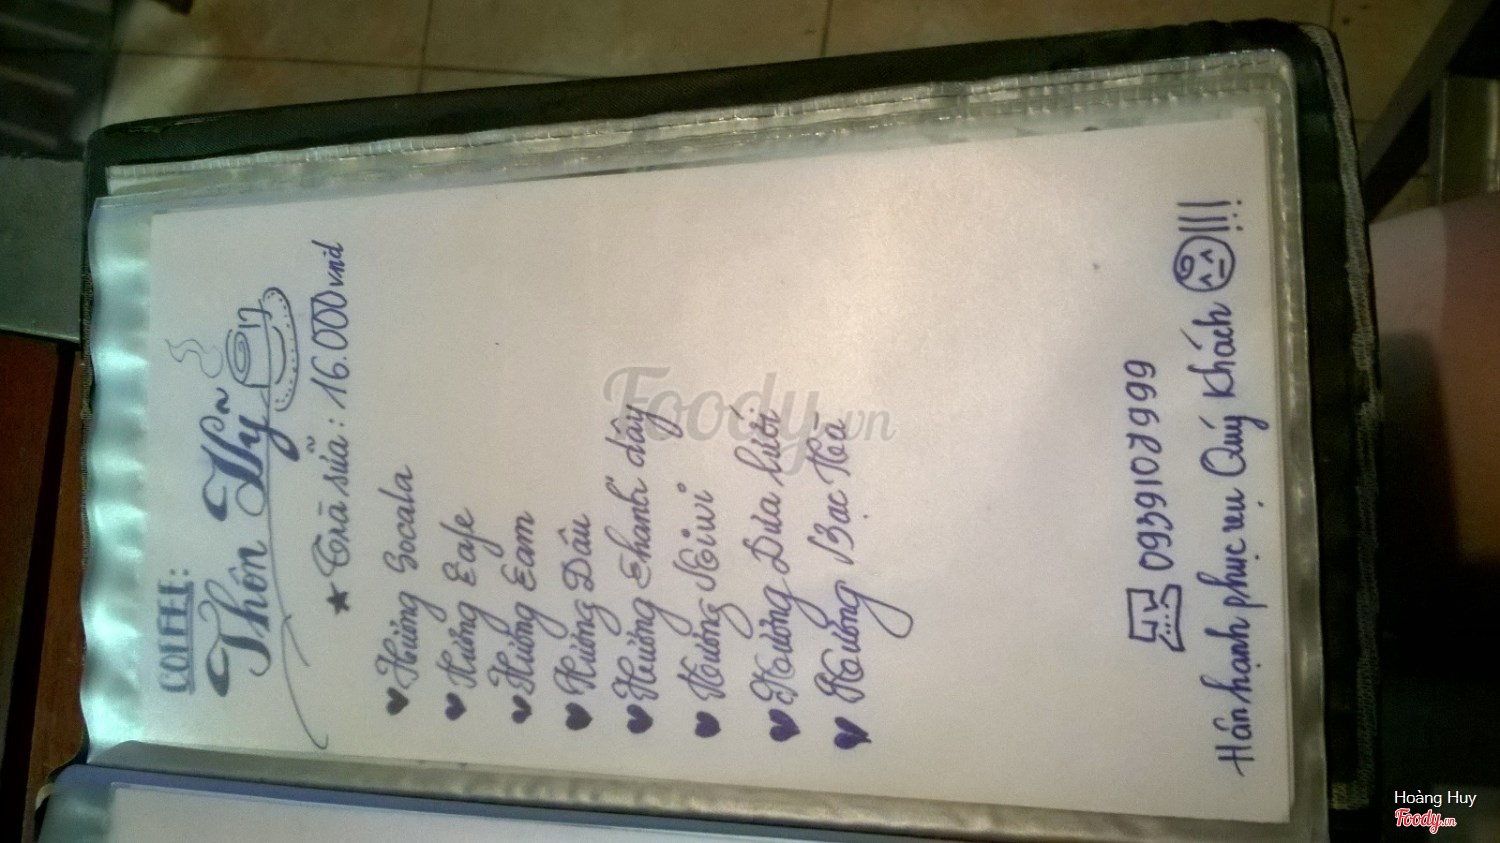 COFFEE:
Thôn Vỹ
★ Trà sữa : 16.000vnd
♥ Hương Socala
♥ Hương Cafe
♥ Hương Cam
♥ Hương Dâu
♥ Hương Chanh dây
♥ Hương Kiwi
♥ Hương Dưa lưới
♥ Hương Bạc Hà
0939107999
Hân hạnh phục vụ Quý Khách !!!
Foody.vn
Hoàng Huy
Foody.vn